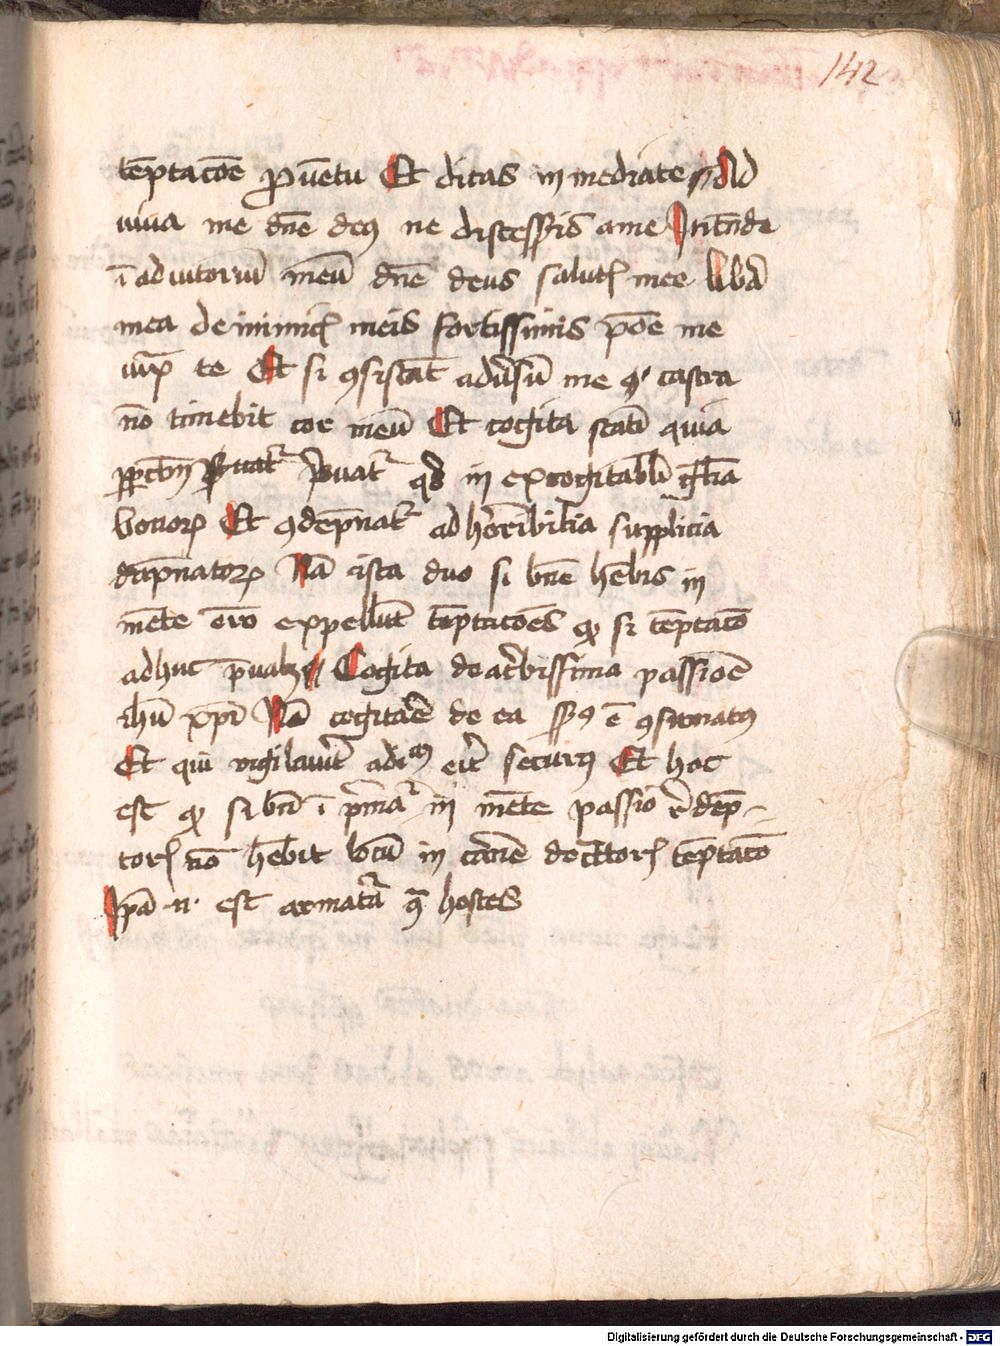 142
te̅ptac̅o̅e ꝓue̅tu Et dicas in mediate Ad
iuua me dn̅e deꝰ ne discesseris a me Inte̅nde
i̅ adiutoriu̅ meu̅ dn̅e deus salutꝭ mee lib̅a
mea de inimicꝭ meis fortissimis po̅e me
iux̅ te Et si ꝯsista̅t adu̅su̅ me castra
no̅ timebit cor meu̅ Et cogita stati̅ quia
pp̅ctm̅ ꝓuat᷑ p̅uat᷑ qd̓ in excogitabli̅ gl̅ia
bonoꝝ Et ꝯde̅pnat᷑ ad horribilia supplicia
da̅pnatoꝝ Na̅ ista duo si bn̅e he̅bis in
me̅te om̅o expellu̅t te̅ptac̅o̅es qꝛ si te̅ptac̅o
adhuc p̅ualꝫ Cogita de ac̅bissima passio̅e
ihu̅ xp̅i Na̅ cogitac̅o̅e de ea e̅
Et qui eit̅ securꝰ Et hoc
est qꝛ si bn̅ i̅ p̅mat᷑ in me̅te passio re̅de̅p-
torꝭ no̅ he̅bit locu̅ in carne te̅ptac̅o
Ip̅a .n. est armat̅a ꝯ̅ hostes
Digitalisierung gefördert durch die Deutsche Forschungsgemeinschaft - DFG